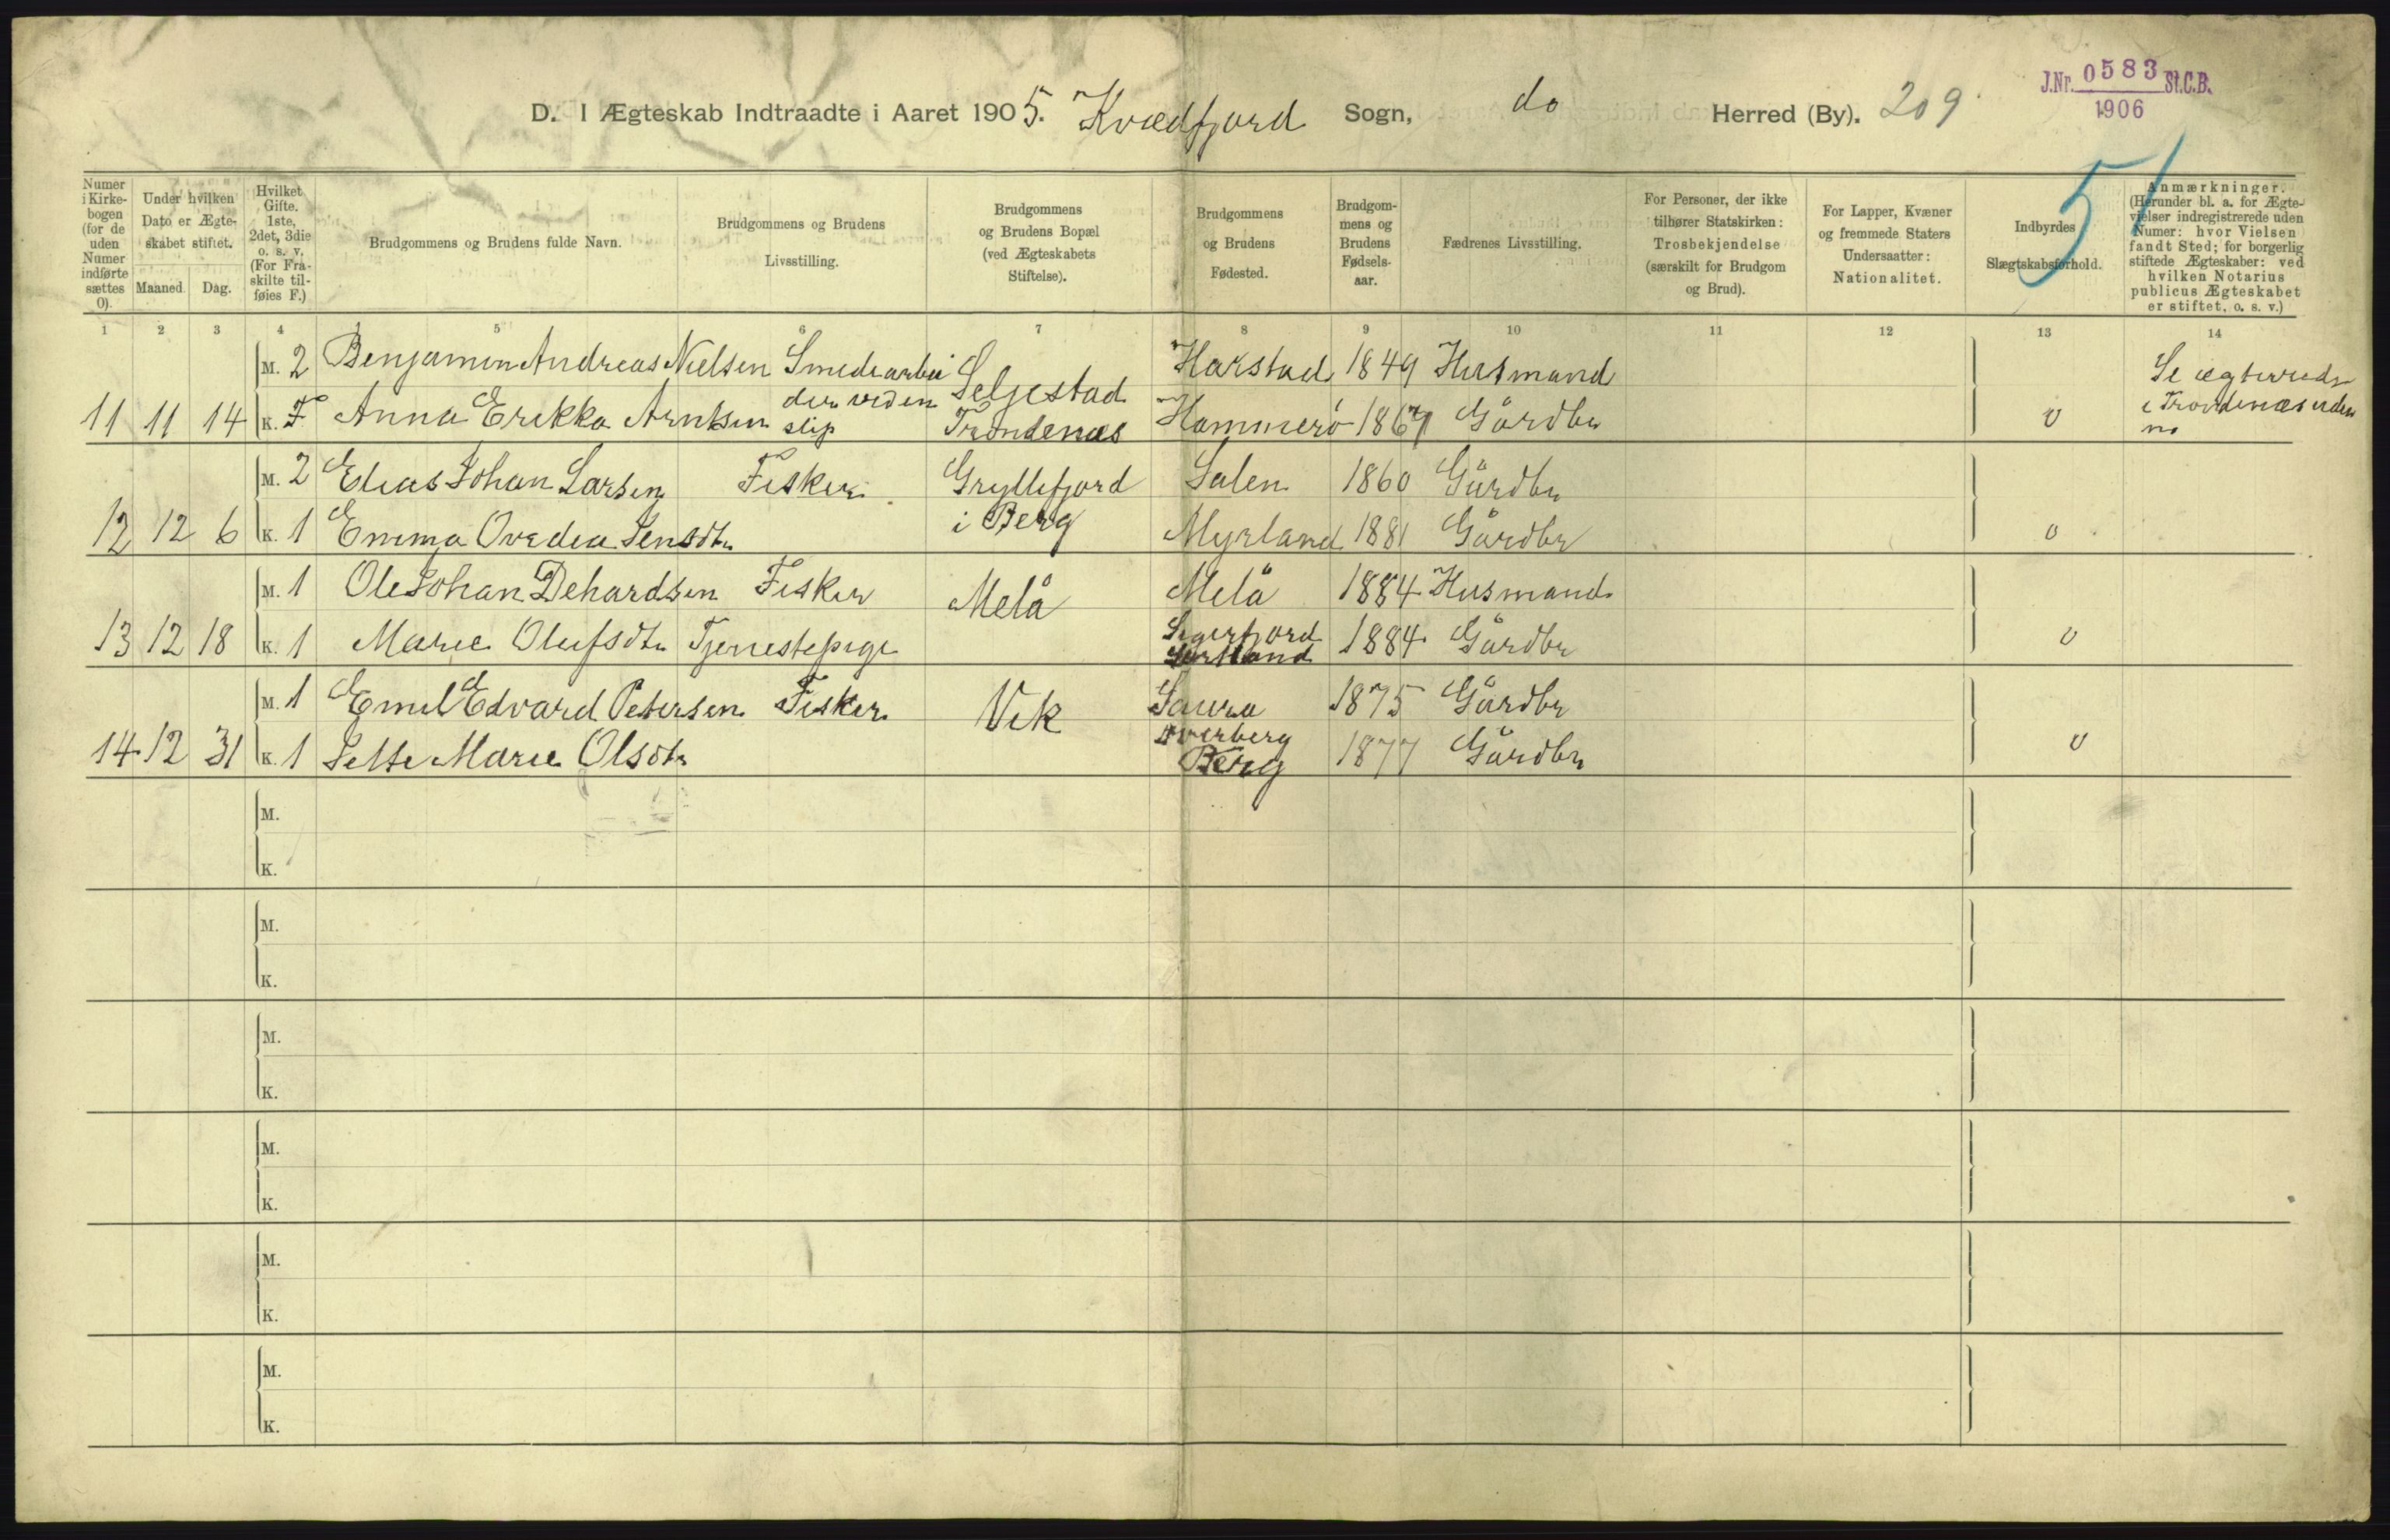 J.Nr. 0583 St.C.B.
1906
D. I Ægteskab Indtraadte i Aaret 1905. Kvædfjord Sogn, do Herred (By). 209
51
Numer i Kirkebogen (for de uden Numer indførte sættes 0).
Under hvilken Dato er Ægteskabet stiftet.
Maaned. Dag.
Hvilket Gifte. 1ste, 2det, 3die o. s. v. (For Fraskilte tilføies F.)
Brudgommens og Brudens fulde Navn.
Brudgommens og Brudens Livsstilling.
Brudgommens og Brudens Bopæl (ved Ægteskabets Stiftelse).
Brudgommens og Brudens Fødested.
Brudgommens og Brudens Fødselsaar.
Fædrenes Livsstilling.
For Personer, der ikke tilhører Statskirken: Trosbekjendelse (særskilt for Brudgom og Brud).
For Lapper, Kvæner og fremmede Staters Undersaatter: Nationalitet.
Indbyrdes Slægtskabsforhold.
Anmærkninger. (Herunder bl. a. for Ægtevielser indregistrerede uden Numer: hvor Vielsen fandt Sted; for borgerlig stiftede Ægteskaber: ved hvilken Notarius publicus Ægteskabet er stiftet, o. s. v.)
1 2 3 4 5 6 7 8 9 10 11 12 13 14
M. 2 Benjamin Andreas Nielsen Smedearbeider ved en slip Seljestad Trondenæs Harstad 1849 Husmand
11 11 14 K. F Anna Erikka Arntsen Hammerö Gårdbr 0
M. 2 Elias Johan Larsen Fisker Gryllefjord i Berg Salen 1860 Gårdbr
12 12 6 K. 1 Emma Ovedia Jensdtr Myrland 1881 Gårdbr 0
M. 1 Ole Johan Dehardsen Fisker Melå Melå 1884 Husmand
13 12 18 K. 1 Marie Olufsdtr Tjenestepige Sigerfjord Sortland 1884 Gårdbr 0
M. 1 Emil Edvard Petersen Fisker Vik 1875 Gårdbr
14 12 31 K. 1 Jette Marie Olsdtr Berg 1877 Gårdbr 0
M.
K.
M.
K.
M.
K.
M.
K.
M.
K.
M.
K.